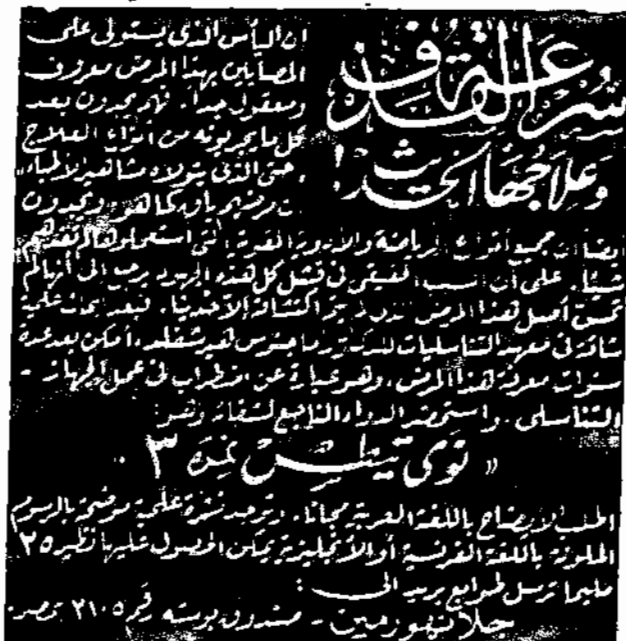 سرعة القذف
وعلاجها الحديث!
ان اليأس الذى يستولى على
المصابين بهذا المرض معروف
ومعقول جدا. فهم يجدون بعد
كل ما يجربونه من أنواع العلاج
حتى الذى يتولاه مشاهير الأطباء
مرضهم باق كما هو ويجدون
أيضا أن جميع أنواع الرياضة والأدوية المقوية التى استعملوها لم تفدهم
شيئا. على أن السبب الحقيقى فى فشل كل هذه الجهود يرجع الى أنها لم
تمس أصل هذا المرض الذى لم يتم اكتشافه إلا حديثا. فبعد ابحاث علمية
شاقة فى معهد التناسليات للدكتور ماجنوس هيرشفلد، أمكن بعد عدة
سنوات معرفة هذا المرض. وهو عبارة عن اضطراب فى عمل الجهاز
التناسلى. واستحضر الدواء الناجع لشفائه وهو:
« نمرة ٣
اطلب الايضاح باللغة العربية مجانا. وتوجد نشرة علمية موضحة بالرسوم
الملونة باللغة الفرنسية أو الأنجليزية يمكن الحصول عليها نظير ٢٥
مليما ترسل طوابع بريد الى:
جلانفورمين - صندوق بوسته رقم ٢١٠٥ بمصر